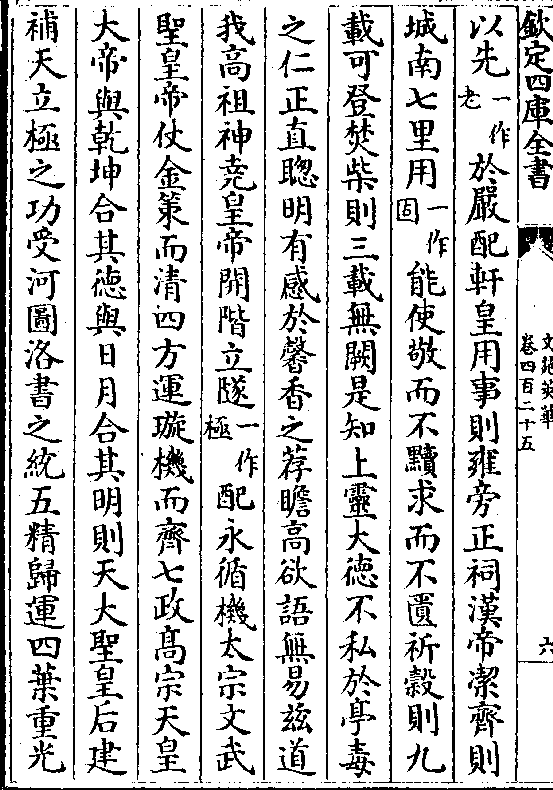 欽定四庫全書
文苑英華
卷四百二十五
六
以先一作老於嚴配軒皇用事則雍旁正祠漢帝潔齊則
城南七里用一作固能使敬而不黷求而不匱祈穀則九
載可登焚柴則三載無闕是知上靈大德不私於亭毒
之仁正直聰明有感於馨香之荐瞻高欲語無易兹道
我高祖神堯皇帝開階立隧一作極配永循機太宗文武
聖皇帝仗金策而清四方運璇機而齊七政髙宗天皇
大帝與乾坤合其德與日月合其明則天大聖皇后建
補天立極之功受河圖洛書之統五精歸運四葉重光